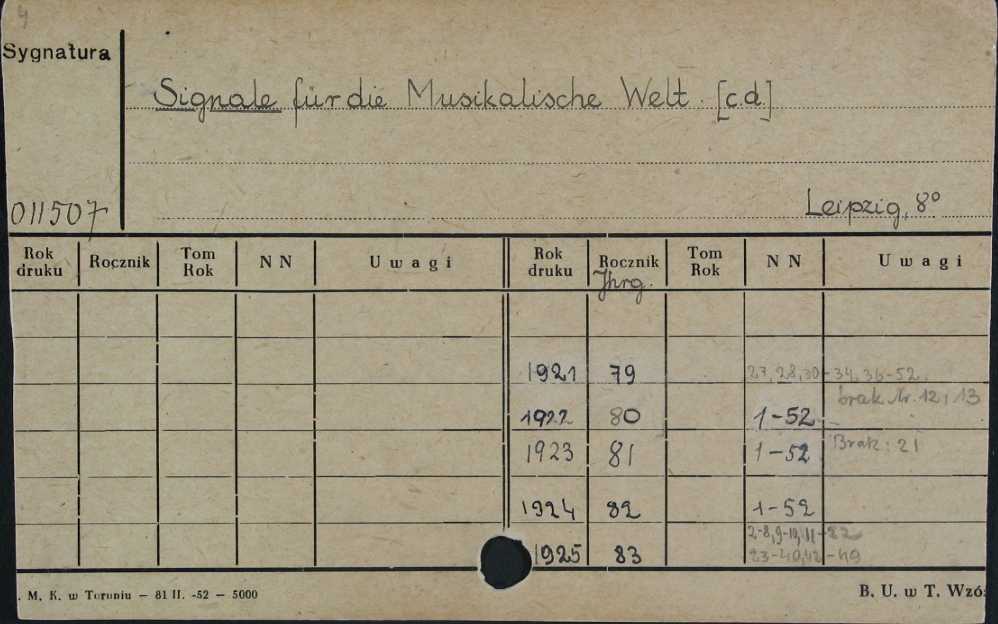 4
Sygnatura
Signale für die Musikalische Welt. [c.d.]
011507
Leipzig, 8º
Rok druku Rocznik Tom Rok N N Uwagi Rok druku Rocznik Jhrg. Tom Rok N N Uwagi
1921 79 27, 28, 30-34, 36-52.
1922 80 1-52 brak Nr. 12, 13
1923 81 1-52 Brak: 21
1924 82 1-52
1925 83 2-8, 9-10, 11-22
23-40, 42-49
. M. K. w Toruniu — 81 II. -52 — 5000
B. U. w T. Wzó